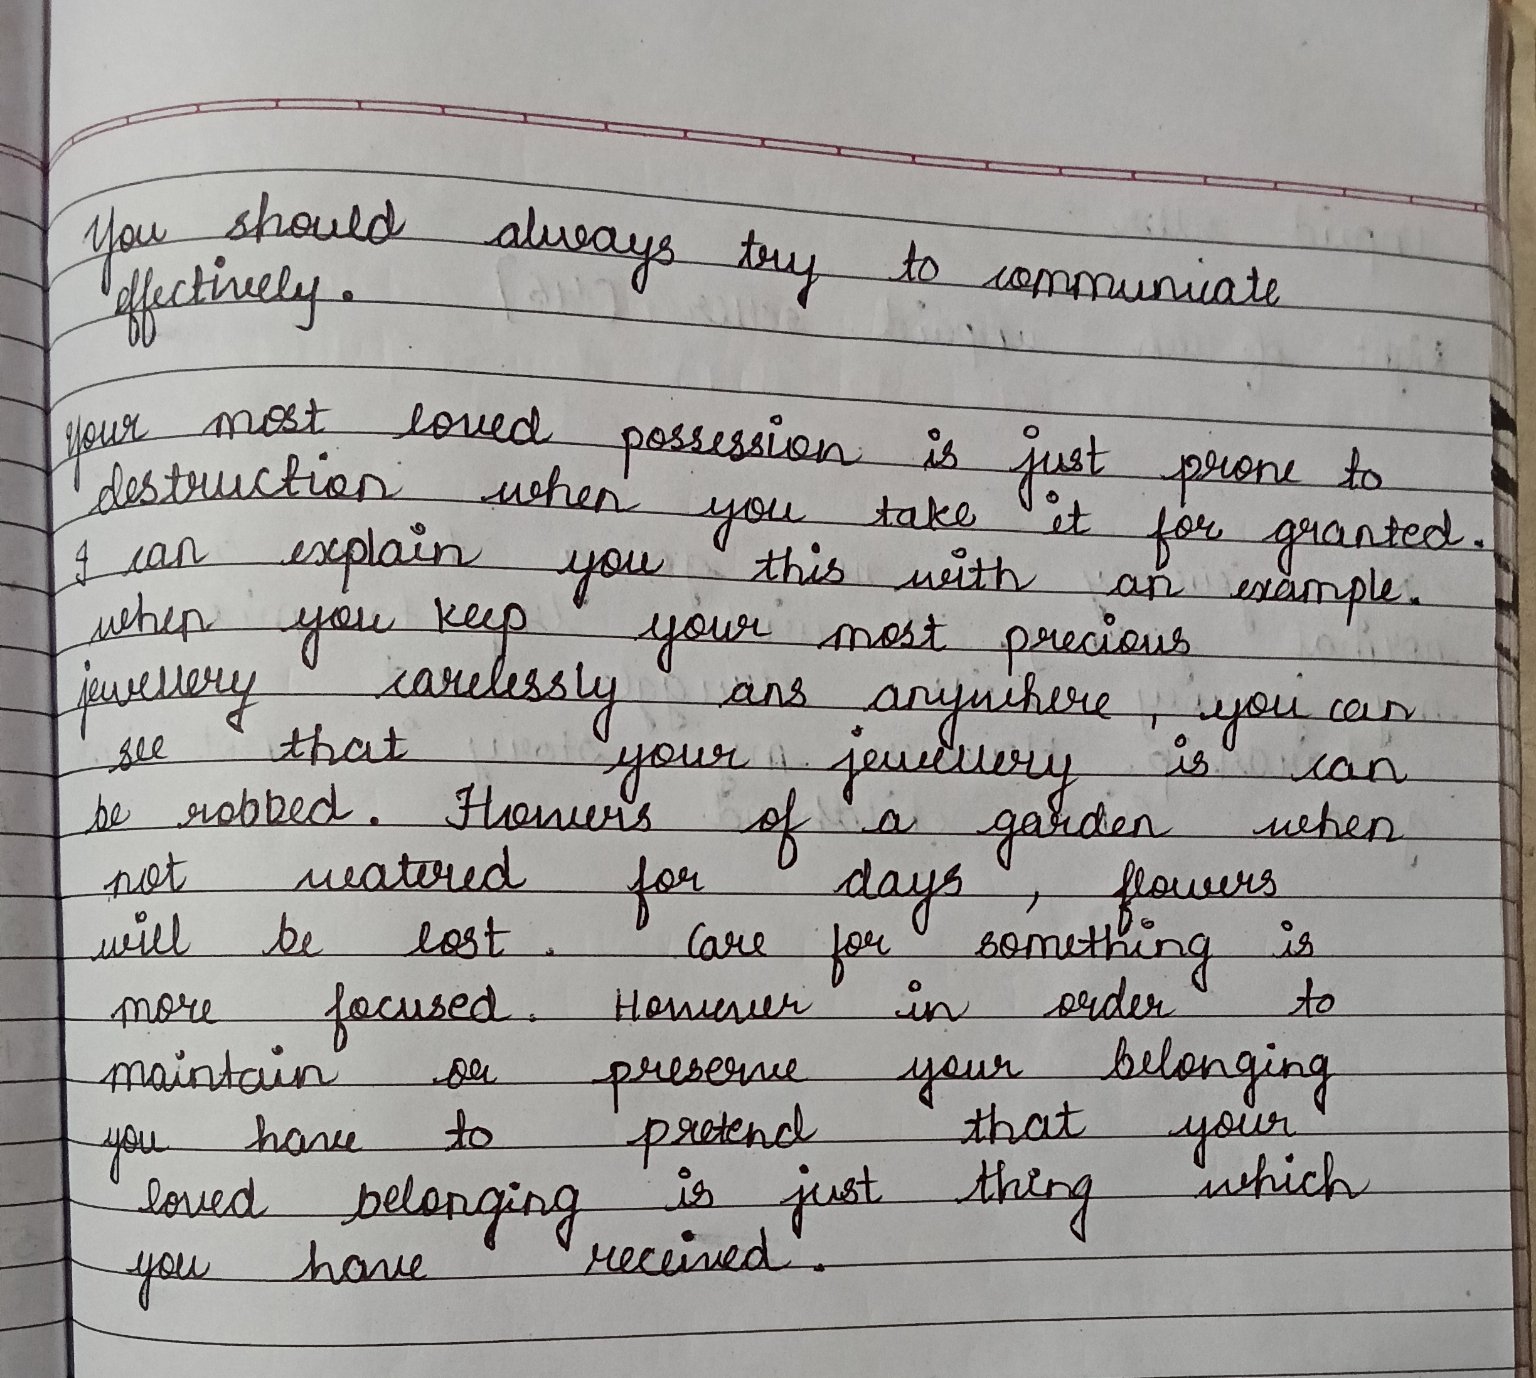 You should always try to communicate
effectively.
your most loved possession is just prone to
destruction when you take it for granted.
I can explain you this with an example.
when you keep your most precious
jewellery carelessly ans anywhere, you can
see that your jewellery is can
be robbed. Flowers of a garden when
not watered for days, flowers
will be lost. Care for something is
more focused. However in order to
maintain or preserve your belonging
you have to pretend that your
loved belonging is just thing which
you have received.